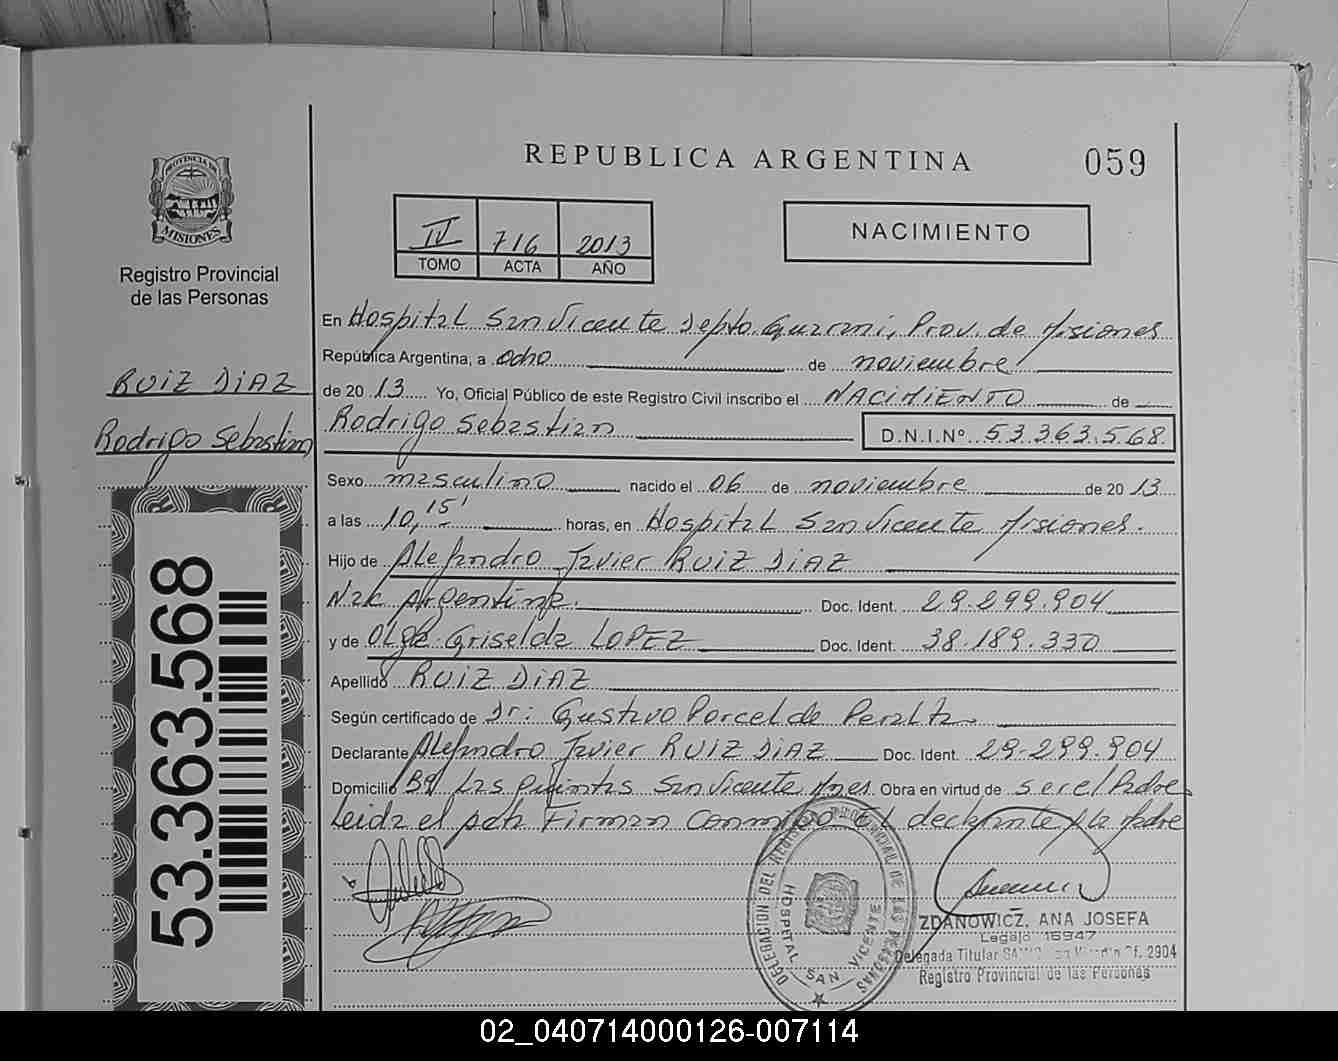 REPUBLICA ARGENTINA
059
PROVINCIA DE MISIONES
Registro Provincial
de las Personas
IV 716 2013
TOMO ACTA AÑO
NACIMIENTO
En Hospital San Vicente Depto Guarani, Prov. de Misiones
República Argentina, a ocho de noviembre
de 2013 Yo, Oficial Público de este Registro Civil inscribo el NACIMIENTO de
RUIZ DIAZ
Rodrigo Sebastian
Rodrigo Sebastian D.N.I.Nº 53.363.568
Sexo masculino nacido el 06 de noviembre de 2013
a las 10,15' horas, en Hospital San Vicente Misiones.
Hijo de Alejandro Javier RUIZ DIAZ
Nac Argentina. Doc. Ident. 29.299.904
y de Olga Griselda LOPEZ Doc. Ident. 38.189.330
Apellido RUIZ DIAZ
Según certificado de Dr: Gustavo Porcel de Peralta
Declarante Alejandro Javier RUIZ DIAZ Doc. Ident. 29.299.904
Domicilio Bº Las Quintas San Vicente Mnes. Obra en virtud de ser el Padre
Leida el acta Firman Conmigo El declarante y la Madre
53.363.568
DELEGACION DEL REGISTRO PROVINCIAL DE LAS PERSONAS
HOSPITAL SAN VICENTE
ZDANOWICZ, ANA JOSEFA
Legajo 16947
Delegada Titular Of. 2904
Registro Provincial de las Personas
02_040714000126-007114